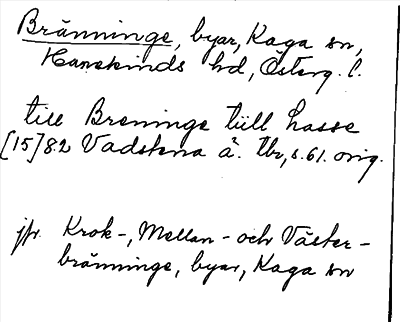 Bränninge, byar, Kaga sn,
Hanekinds hd, Österg. l.
till Breninge tiill Lasse
[15]82 Vadstena ä. Tb, s. 61. orig.
jfr. Krok-, Mellan- och Väster-
bränninge, byar, Kaga sn